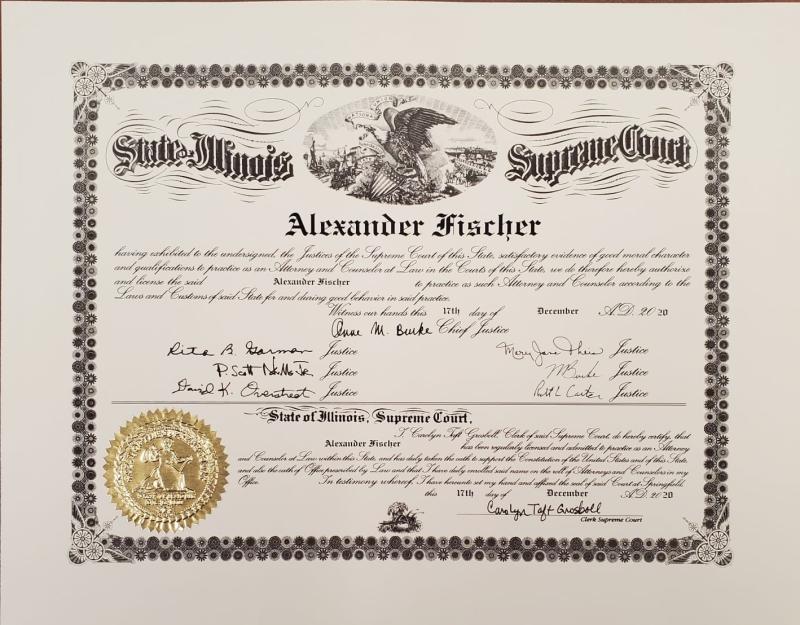 State of Illinois Supreme Court
Alexander Fischer
having exhibited to the undersigned, the Justices of the Supreme Court of this State, satisfactory evidence of good moral character
and qualifications to practice as an Attorney and Counselor at Law in the Courts of this State, we do therefore hereby authorize
and license the said Alexander Fischer to practice as such Attorney and Counselor according to the
Laws and Customs of said State for and during good behavior in said practice.
Witness our hands this 17th day of December A.D. 20 20
Anne M. Burke Chief Justice
Rita B. Garman Justice Mary Jane Theis Justice
P. Scott Justice MBurke Justice
David K. Overstreet Justice Robt L Carter Justice
State of Illinois, Supreme Court,
I, Carolyn Taft Grosboll, Clerk of said Supreme Court, do hereby certify, that
Alexander Fischer has been regularly licensed and admitted to practice as an Attorney
and Counselor at Law within this State, and has duly taken the oath to support the Constitution of the United States and of this State,
and also the oath of Office prescribed by Law and that I have duly enrolled said name on the roll of Attorneys and Counselors in my
Office. In testimony whereof, I have hereunto set my hand and affixed the seal of said Court at Springfield,
this 17th day of December A.D. 20 20
Carolyn Taft Grosboll
Clerk Supreme Court